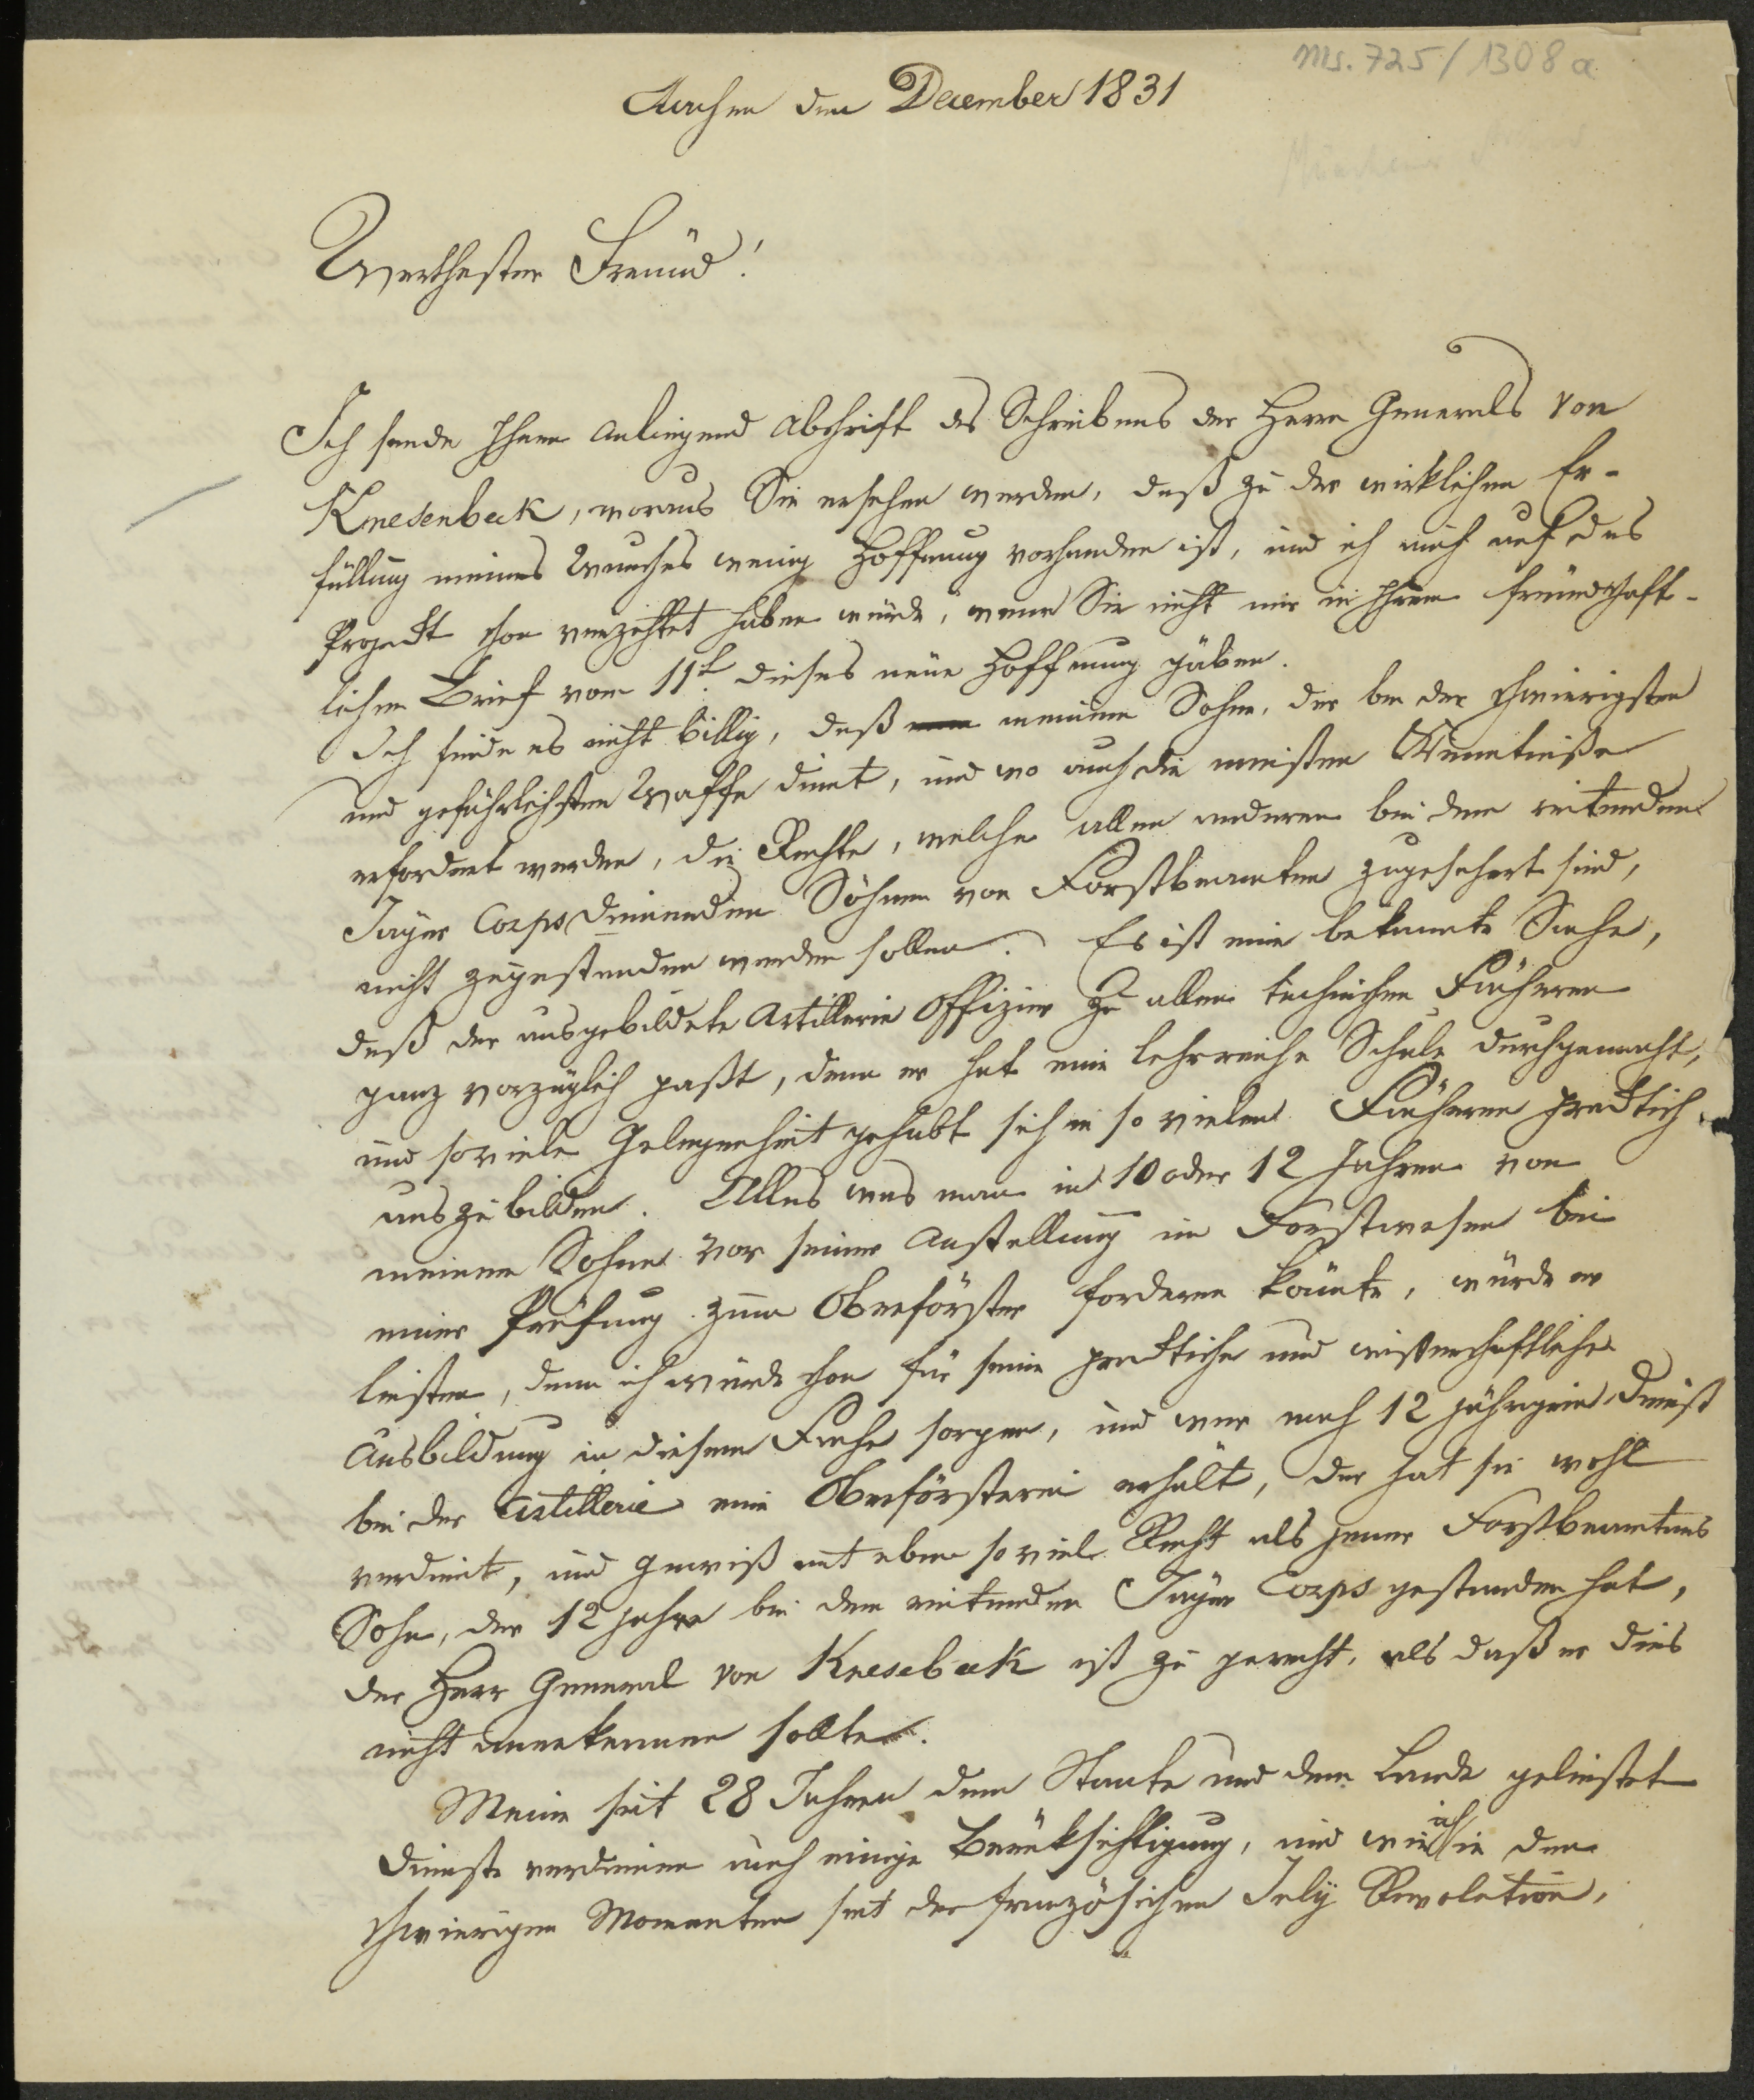 Ms. 725/1308a
Aachen den December 1831
Werthester Freund!
Ich sende Ihnen anliegend Abschrift des Schreibens des Herrn Generals von
Knesenbeck, woraus Sie ersehen werden, daß zu der wirklichen Er-
füllung meines Wunsches wenig Hoffnung vorhanden ist, und ich mich auf das
Projeckt schon verzichtet haben würde, wenn Sie nicht mir in Ihrem freundschaft-
lichen Brief vom 11t. dieses neue Hoffnung gäben.
Ich finde es nicht billig, daß meinem Sohne, der bei der schwierigsten
und gefährlichsten Waffe dient, und wo auch die meisten Kenntniße
erfordert werden, die Rechte, welche allen anderen bei dem reitenden
Jäger Corps dienenden Söhnen von Forstbeamten zugesichert sind,
nicht zugestanden werden sollen. Es ist eine bekannte Sache,
daß der ausgebildete Artillerie Offizier zu allen technischen Fächeren
ganz vorzüglich paßt, denn er hat eine lehrreiche Schule durchgemacht,
und so viele Gelegenheit gehabt sich in so vielen Fächeren practisch
auszubilden. Alles was man in 10 oder 12 Jahren von
meinem Sohne vor seiner Anstellung im Forstwesen bei
einer Prüfung zum Oberförster forderen könnte, würde er
leisten, denn ich würde schon für seine practische und wissenschaftliche
Ausbildung in diesem Fache sorgen, und wer nach 12 jährigem Dienst
bei der Artillerie eine Oberförsterei erhält, der hat sie wohl
verdient, und gewiß mit eben so viel Recht als jener Forstbeamtens
Sohn, der 12 Jahre bei dem reitenden Jäger Corps gestanden hat,
der Herr General von Knesebeck ist zu gerecht, als daß er dies
nicht anerkennen sollte.
Meine seit 28 Jahren dem Staate und dem Lande geleistet
Dienste verdienen auch einige Berücksichtigung, und wie ich in den
schwierigen Momenten seit der französischen July Revolution,